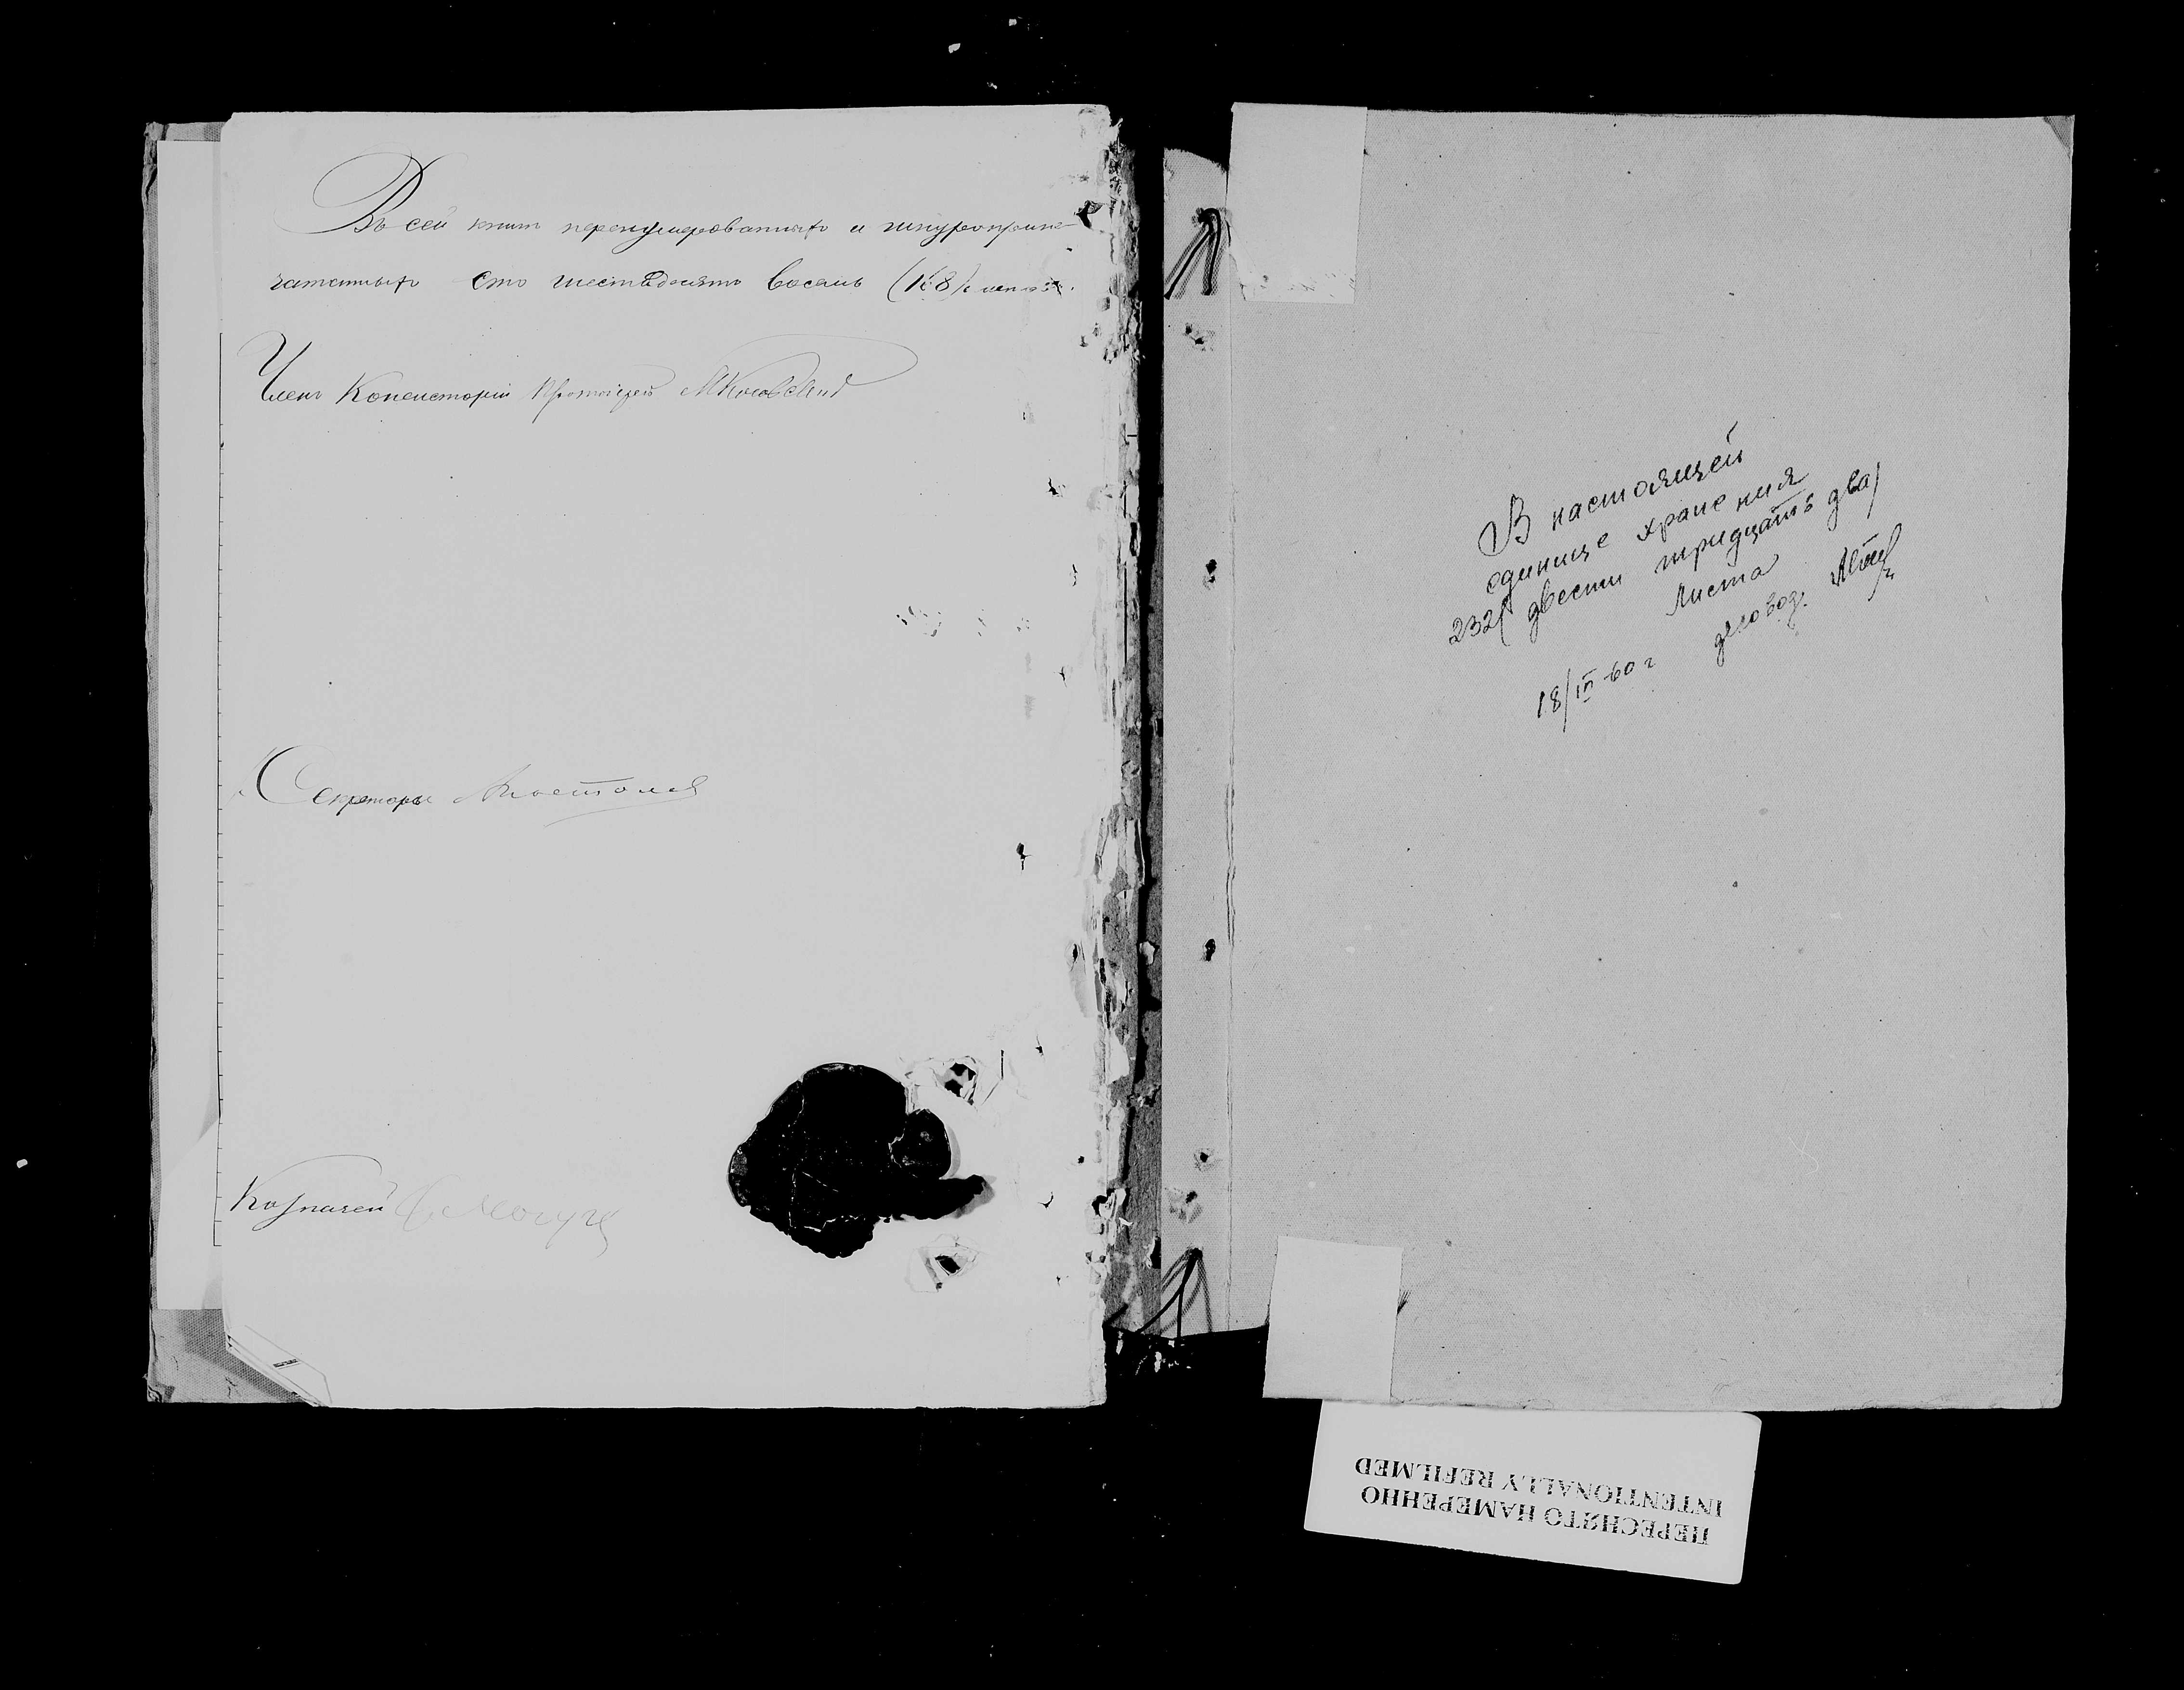 Въ сей книг перенумерованныхъ и шнуроприпе-
чатанныхъ сто шестьдесятъ восемь (168) листов.
Членъ Консисторіи Протоіерей
Секретарь
Казначей
В настоящей
единице хранения
232 (двести тридцать два)
листа
делопроизвод.
18/III-60 г
ПЕРЕСНЯТО НАМЕРЕННО
INTENTIONALLY REFILMED